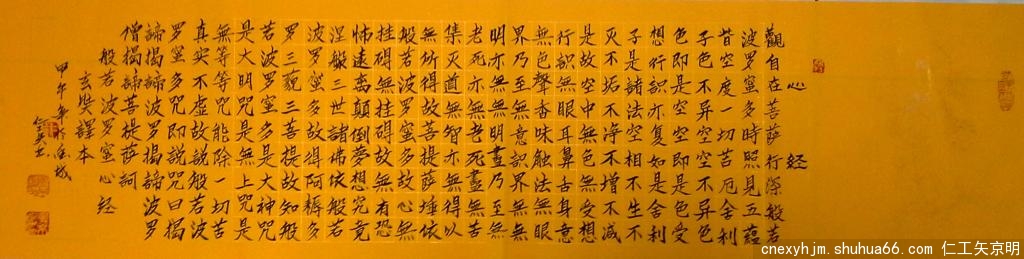 心经
觀自在菩萨行深般若
波罗蜜多時照見五蕴
皆空度一切苦厄舍利
子色不异空空不异色
色即是空空即是色受
想行識亦复如是舍利
子是諸法空相不生不
灭不垢不净不增不减
是故空中無色無受想
行識無眼耳鼻舌身意
無色聲香味触法無眼
界乃至無意識界無無
明亦無無明盡乃至無
老死亦無老死盡無苦
集灭道無智亦無得以
無所得故菩提萨埵依
般若波罗蜜多故心無
挂碍無挂碍故無有恐
怖遠离顛倒夢想究竟
涅般三世諸佛依般若
波罗蜜多故得阿耨多
罗三藐三菩提故知般
若波罗蜜多是大神咒
是大明咒是無上咒是
無等等咒能除一切苦
真实不虚故說般若波
罗蜜多咒即說咒曰揭
諦揭諦波罗揭諦波罗
僧揭諦菩提萨訶
般若波罗蜜心经
玄奘譯本
甲午年
cnexyhjm.shuhua66.com 仁工矢京明